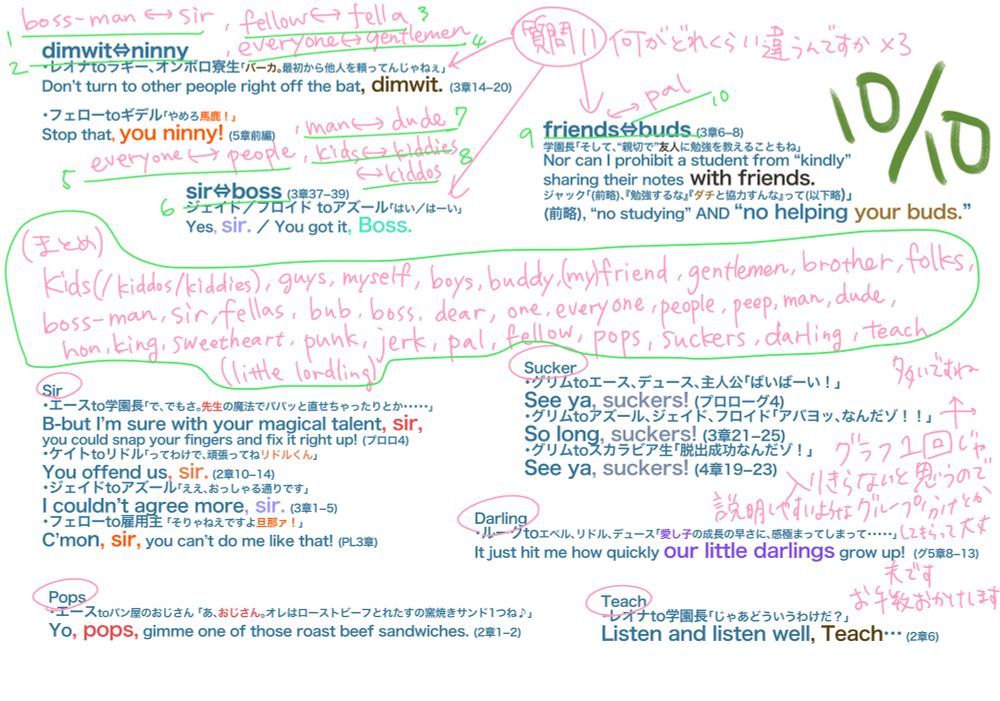 1 boss-man ↔ sir, fellow ↔ fella 3
everyone ↔ gentlemen 4
2 dimwit⇔ninny
・レオナtoラギー、オンボロ寮生「バーカ。最初から他人を頼ってんじゃねぇ」
Don't turn to other people right off the bat, dimwit. (3章14−20)
・フェローtoギデル「やめろ馬鹿！」
Stop that, you ninny! (5章前編)
, man ↔ dude 7
5 everyone ↔ people, kids ↔ kiddies 8
↔ kiddos
6 sir⇔boss (3章37−39)
ジェイド／フロイド toアズール「はい／はーい」
Yes, sir. ／ You got it, Boss.
質問11 何がどれくらい違うんですか ×3
10/10
↔ pal 10
9 friends⇔buds (3章6−8)
学園長「そして、“親切で”友人に勉強を教えることもね」
Nor can I prohibit a student from “kindly”
sharing their notes with friends.
ジャック「(前略)、『勉強するな』『ダチと協力すんな』って(以下略)」
(前略), “no studying” AND “no helping your buds.”
(まとめ)
kids(/kiddos/kiddies), guys, myself, boys, buddy, (my)friend, gentlemen, brother, folks,
boss-man, sir, fellas, bub, boss, dear, one, everyone, people, peep, man, dude,
hon, king, sweetheart, punk, jerk, pal, fellow, pops, suckers, darling, teach
(little lordling)
Sir
・エースto学園長「で、でもさ。先生の魔法でパパッと直せちゃったりとか・・・・・」
B-but I'm sure with your magical talent, sir,
you could snap your fingers and fix it right up! (プロロ4)
・ケイトtoリドル「ってわけで、頑張ってねリドルくん」
You offend us, sir. (2章10−14)
・ジェイドtoアズール「ええ、おっしゃる通りです」
I couldn't agree more, sir. (3章1−5)
・フェローto雇用主「そりゃねえですよ旦那ァ！」
C'mon, sir, you can't do me like that! (PL3章)
Pops
・エースtoパン屋のおじさん「あ、おじさん。オレはローストビーフとれたすの窯焼きサンド1つね♪」
Yo, pops, gimme one of those roast beef sandwiches. (2章1−2)
Sucker
・グリムtoエース、デュース、主人公「ばいばーい！」
See ya, suckers! (プロローグ4)
・グリムtoアズール、ジェイド、フロイド「アバヨッ、なんだゾ！！」
So long, suckers! (3章21−25)
・グリムtoスカラビア生「脱出成功なんだゾ！」
See ya, suckers! (4章19−23)
Darling
・ルークtoエペル、リドル、デュース「愛し子の成長の早さに、感極まってしまって・・・・・」
It just hit me how quickly our little darlings grow up! (グ5章8−13)
Teach
・レオナto学園長「じゃあどういうわけだ？」
Listen and listen well, Teach… (2章6)
多いですね
グラフ1回じゃ
入りきらないと思うので
説明しやすいようなグループ分けとか
してもらって大丈
夫です
お手数おかけします